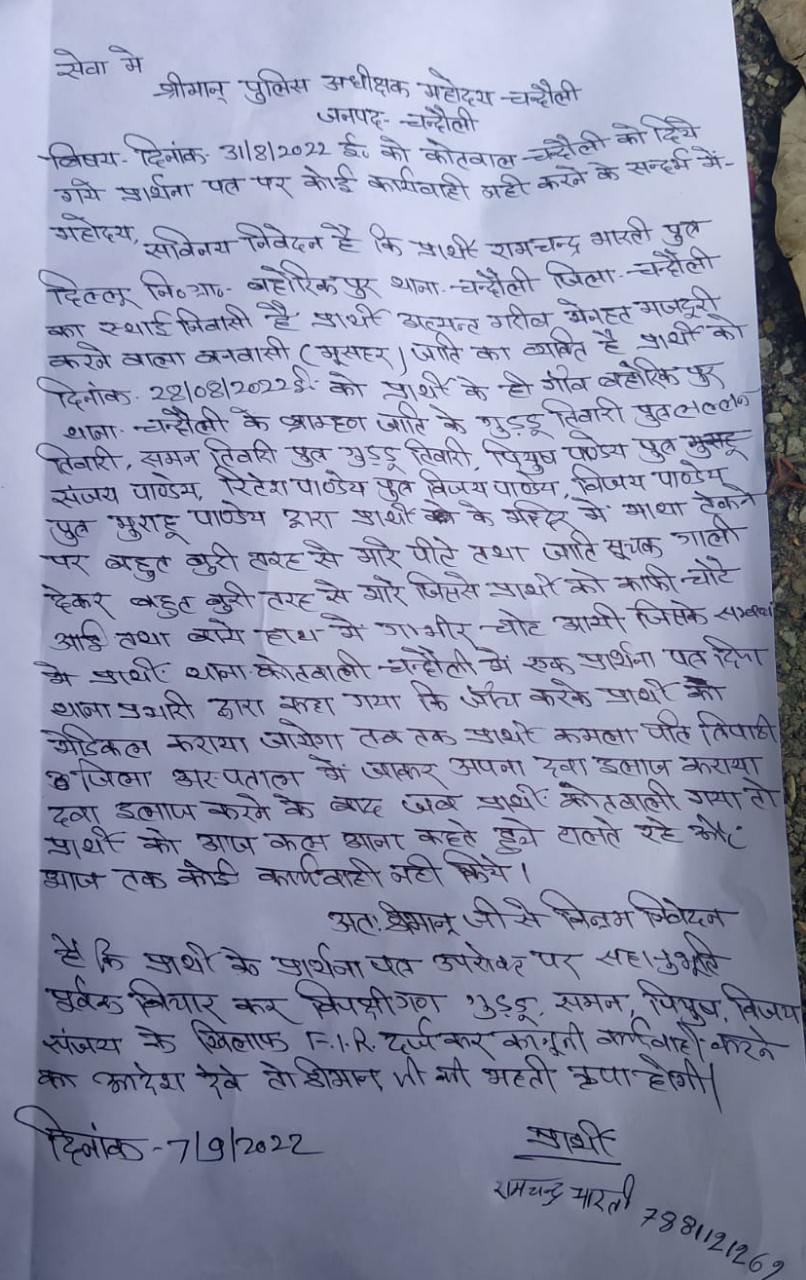 सेवा मे
श्रीमान् पुलिस अधीक्षक महोदय चन्दौली
जनपद- चन्दौली
विषय- दिनांक- 31/8/2022 ई० को कोतवाल चन्दौली को दिये
गये प्रार्थना पत्र पर कोई कार्यवाही नही करने के सन्दर्भ में-
महोदय,
सविनय निवेदन है कि प्रार्थी रामचन्द्र भारती पुत्र
दिल्लू नि०ग्रा०- बहोरिकपुर थाना- चन्दौली जिला- चन्दौली
का स्थाई निवासी है प्रार्थी अत्यन्त गरीब मेनहत मजदूरी
करने वाला बनवासी (मूसहर) जाति का व्यक्ति है प्रार्थी को
दिनांक- 28/08/2022ई- को प्रार्थी के ही गाँव बहोरिक पुर
थाना- चन्दौली के ब्राम्हण जाति के गुड्डू तिवारी पुत्र लल्लन
तिवारी, समन तिवारी पुत्र गुड्डू तिवारी, पियुष पाण्डेय पुत्र
संजय पाण्डेय, रितेश पाण्डेय पुत्र विजय पाण्डेय, विजय पाण्डेय
पुत्र मुराहू पाण्डेय द्वारा प्रार्थी के मंदिर में माथा टेकने
पर बहुत बुरी तरह से मारे पीटे तथा जाति सूचक गाली
देकर बहुत बुरी तरह से मारे जिससे प्रार्थी को काफी चोटे
आई तथा बाये हाथ मे गम्भीर चोट आयी जिसके सम्बन्ध
मे प्रार्थी थाना- कोतवाली चन्दौली में एक प्रार्थना पत्र दिया
थाना प्रभारी द्वारा कहा गया कि जाँच करके प्रार्थी का
मेडिकल कराया जायेगा तब तक प्रार्थी कमला पति त्रिपाठी
जिला अस्पताल में जाकर अपना दवा इलाज कराया
दवा इलाज करने के बाद जब प्रार्थी कोतवाली गया तो
प्रार्थी को आज कल आना कहते हुये टालते रहे और
आज तक कोई कार्यवाही नही किये।
अतः श्रीमान् जी से विनम्र निवेदन
है कि प्रार्थी के प्रार्थना पत्र उपरोक्त पर सहानुभूति
पूर्वक विचार कर विपक्षीगण गुड्डू, समन, पियुष, विजय
संजय के खिलाफ F.I.R. दर्ज कर कानूनी कार्यवाही करने
का आदेश देवे तो श्रीमान् जी की महती कृपा होगी।
दिनांक- 7/9/2022
प्रार्थी
रामचन्द्र भारती 7881121269